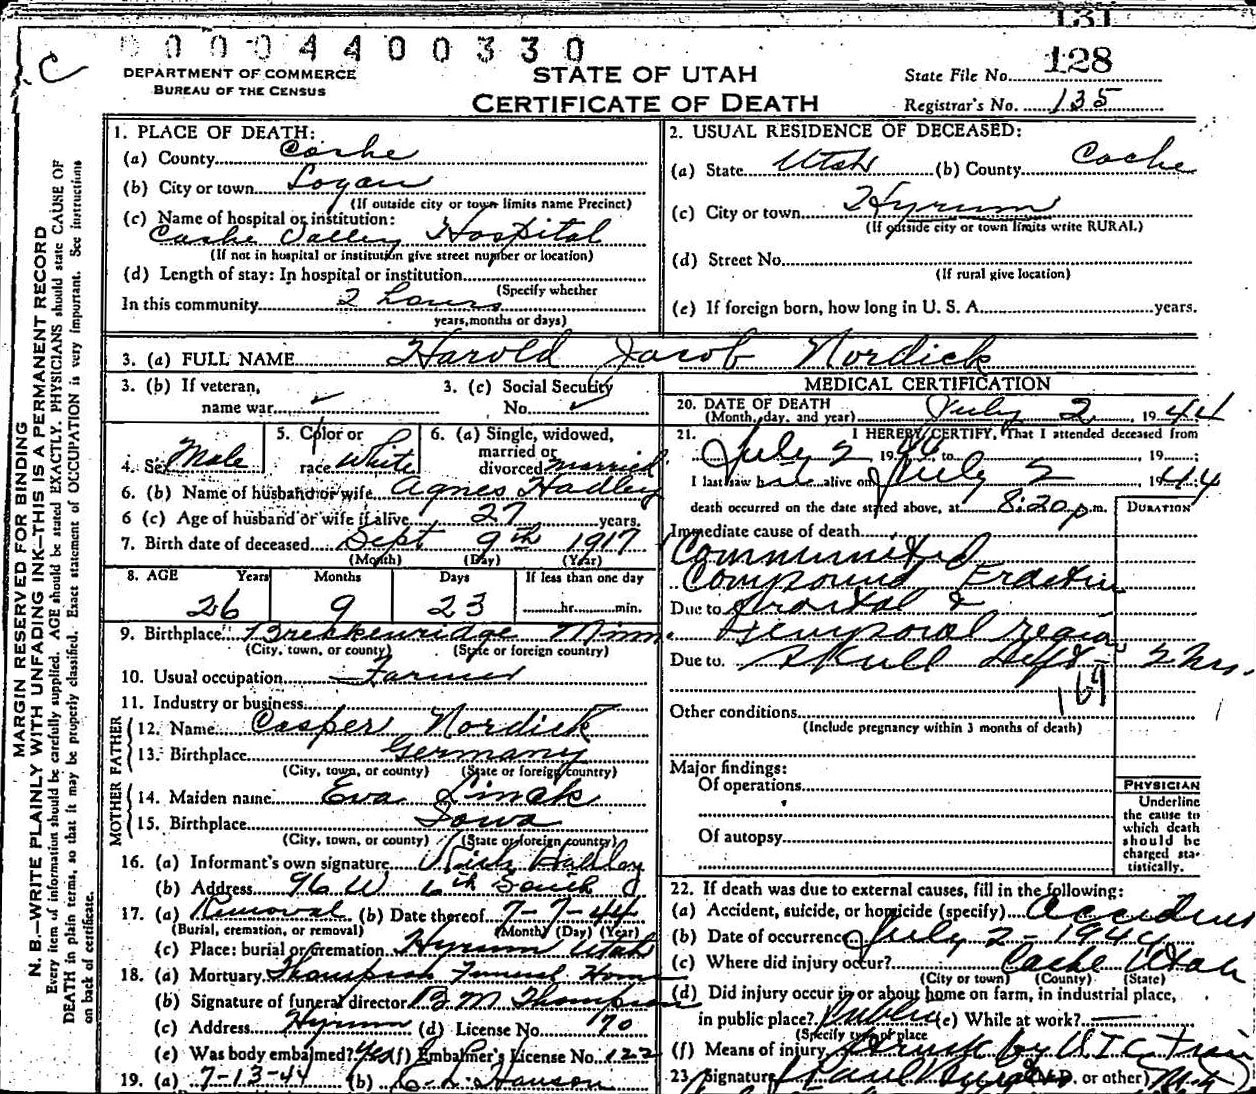 131
0 0 0 0 4 4 0 0 3 3 0
C
DEPARTMENT OF COMMERCE
BUREAU OF THE CENSUS
STATE OF UTAH
CERTIFICATE OF DEATH
State File No. 128
Registrar's No. 135
MARGIN RESERVED FOR BINDING
N. B.—WRITE PLAINLY WITH UNFADING INK—THIS IS A PERMANENT RECORD
Every item of information should be carefully supplied. AGE should be stated EXACTLY. PHYSICIANS should state CAUSE OF
DEATH in plain terms, so that it may be properly classified. Exact statement of OCCUPATION is very important. See instructions
on back of certificate.
1. PLACE OF DEATH:
(a) County Cache
(b) City or town Logan
(If outside city or town limits name Precinct)
(c) Name of hospital or institution:
Cache Valley Hospital
(If not in hospital or institution give street number or location)
(d) Length of stay: In hospital or institution
(Specify whether
In this community 2 hours
years, months or days)
2. USUAL RESIDENCE OF DECEASED:
(a) State Utah (b) County Cache
(c) City or town Hyrum
(If outside city or town limits write RURAL)
(d) Street No.
(If rural give location)
(e) If foreign born, how long in U. S. A. years.
3. (a) FULL NAME Harold Jacob Nordick
3. (b) If veteran,
name war
3. (c) Social Security
No.
4. Sex Male
5. Color or
race White
6. (a) Single, widowed,
married or
divorced married
6. (b) Name of husband or wife Agnes Hadley
6 (c) Age of husband or wife if alive 27 years.
7. Birth date of deceased Sept 9th 1917
(Month) (Day) (Year)
8. AGE Years Months Days If less than one day
26 9 23 hr. min.
9. Birthplace Breckenridge Minn.
(City, town, or county) (State or foreign country)
10. Usual occupation Farmer
11. Industry or business
FATHER
12. Name Casper Nordick
13. Birthplace Germany
(City, town, or county) (State or foreign country)
MOTHER
14. Maiden name Eva
15. Birthplace Iowa
(City, town, or county) (State or foreign country)
16. (a) Informant's own signature Hadley
(b) Address 96 W 6th South
17. (a) Removal (b) Date thereof 7-7-44
(Burial, cremation, or removal) (Month) (Day) (Year)
(c) Place: burial or cremation Hyrum Utah
18. (a) Mortuary Thompson Funeral Home
(b) Signature of funeral director B M Thompson
(c) Address Hyrum (d) License No. 170
(e) Was body embalmed? Yes (f) Embalmer's License No. 122
19. (a) 7-13-44 (b) C. L. Hanson
MEDICAL CERTIFICATION
20. DATE OF DEATH
(Month, day, and year) July 2, 1944
21. I HEREBY CERTIFY, That I attended deceased from
July 2 1944 to , 19 ;
I last saw h alive on July 2 1944
death occurred on the date stated above, at 8:20 p.m.
DURATION
Immediate cause of death
Communited
Compound
Due to frontal &
temporal region
Due to skull left 2 hrs.
169
Other conditions
(Include pregnancy within 3 months of death)
Major findings:
Of operations
Of autopsy
PHYSICIAN
Underline
the cause to
which death
should be
charged sta-
tistically.
22. If death was due to external causes, fill in the following:
(a) Accident, suicide, or homicide (specify) Accident
(b) Date of occurrence July 2-1944
(c) Where did injury occur? Cache Utah
(City or town) (County) (State)
(d) Did injury occur in or about home on farm, in industrial place,
in public place? Public (e) While at work? —
(Specify type of place
(f) Means of injury Struck by U.I.C. Train
23. Signature Paul (M.D. or other) M.D